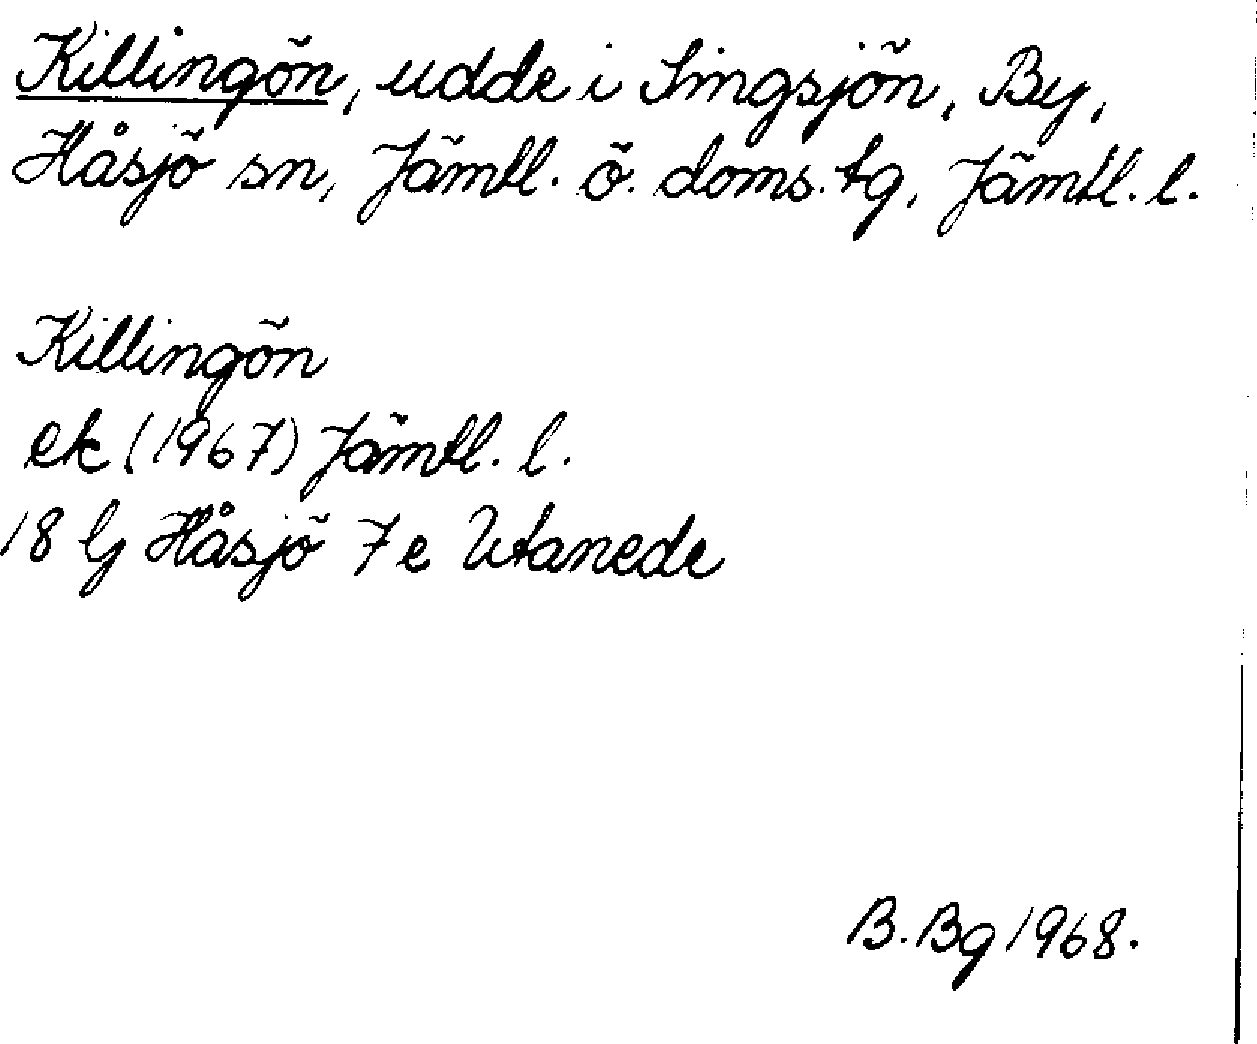 Killingön, udde i Singsjön, By,
Håsjö sn, Jämtl. ö. doms. tg, Jämtl. l.
Killingön
ek (1967) Jämtl. l.
18 G Håsjö 7 e Utanede
B. Bg 1968.